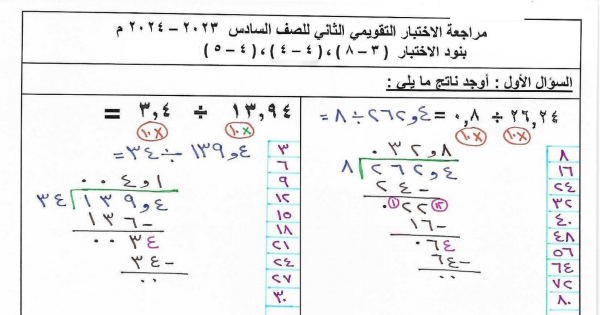 مراجعة الاختبار التقويمي الثاني للصف السادس ٢٠٢٣ – ٢٠٢٤ م
بنود الاختبار (٣ – ٨)، (٤ – ٤)، (٤ – ٥)
السؤال الأول : أوجد ناتج ما يلي :
٢٦,٢٤ ÷ ٠,٨ = ٢٦٢و٤ ÷ ٨
×١٠ ×١٠
٠٣٢و٨
٨ ٢٦٢و٤
٢٤ -
٠٢٢ ١ ١٢
١٦ -
٠٦٤
٦٤ -
٠٠
٨
١٦
٢٤
٣٢
٤٠
٤٨
٥٦
٦٤
٧٢
٨٠
١٣,٩٤ ÷ ٣,٤ =
×١٠ ×١٠
١٣٩و٤ ÷ ٣٤ =
٠٠٤و١
٣٤ ١٣٩و٤
١٣٦ -
٠٠٣٤
٣٤ -
٠٠
٣
٦
٩
١٢
١٥
١٨
٢١
٢٤
٢٧
٣٠